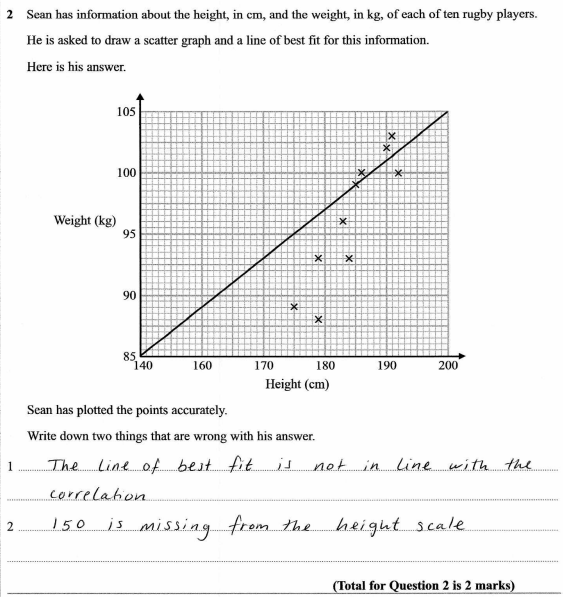 2 Sean has information about the height, in cm, and the weight, in kg, of each of ten rugby players.
He is asked to draw a scatter graph and a line of best fit for this information.
Here is his answer.
105
100
Weight (kg)
95
90
85
140 160 170 180 190 200
Height (cm)
Sean has plotted the points accurately.
Write down two things that are wrong with his answer.
1 The line of best fit is not in line with the
correlation
2 150 is missing from the height scale
(Total for Question 2 is 2 marks)